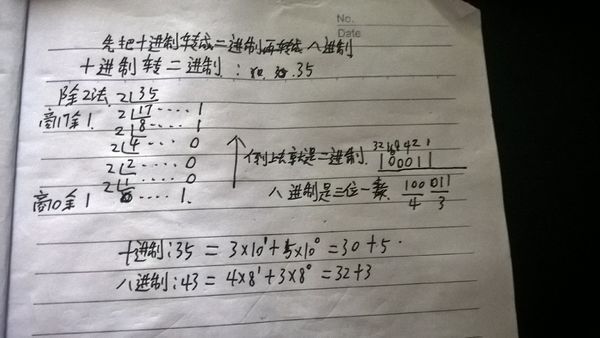 No.
Date
先把十进制转成二进制再转成八进制
十进制转二进制: 35
除2法 2 35
商17余1 2 17 .... 1
2 8 .... 1
2 4 .... 0
2 2 .... 0
2 1 .... 0
商0余1 0 .... 1
倒上去就是二进制. 100011
32 16 8 4 2 1
八进制是三位一数. 100 011
4 3
十进制:35 = 3×10¹+5×10⁰ = 30+5.
八进制:43 = 4×8¹+3×8⁰ = 32+3